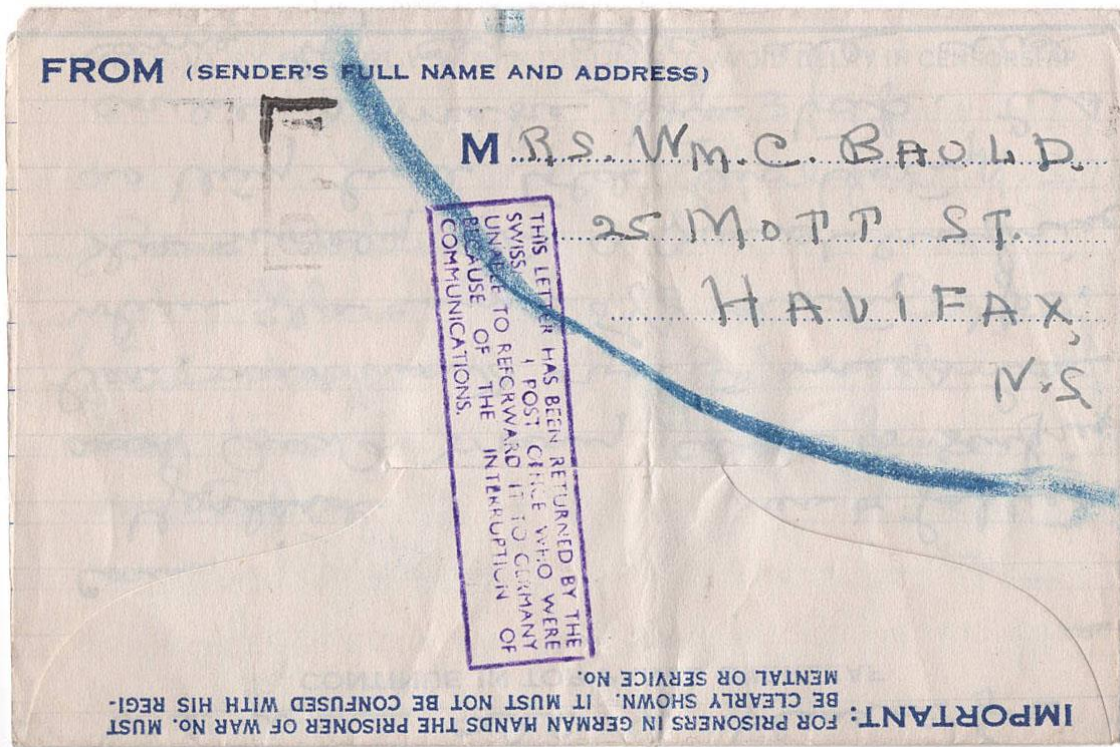 FROM (SENDER'S FULL NAME AND ADDRESS)
MRS. WM. C. BAULD.
25 MOTT ST.
HALIFAX,
N.S
THIS LETTER HAS BEEN RETURNED BY THE
SWISS POST OFFICE WHO WERE
UNABLE TO REFORWARD IT TO GERMANY
BECAUSE OF THE INTERRUPTION OF
COMMUNICATIONS.
IMPORTANT: FOR PRISONERS IN GERMAN HANDS THE PRISONER OF WAR No. MUST
BE CLEARLY SHOWN. IT MUST NOT BE CONFUSED WITH HIS REGI-
MENTAL OR SERVICE No.